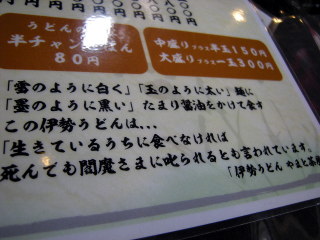 うどんの
半チャンごはん
80円
中盛り プラス半玉150円
大盛り プラス一玉300円
「雪のように白く」「玉のように太い」麺に
「墨のように黒い」たまり醤油をかけて食す
この伊勢うどんは…
「生きているうちに食べなければ
死んでも閻魔さまに叱られるとも言われています。
「伊勢うどん やまと茶屋